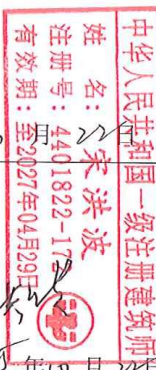 中华人民共和国一级注册建筑师
姓 名：宋洪波
注册号：4401822-17
有效期：至2027年04月29日
月 日
年 月